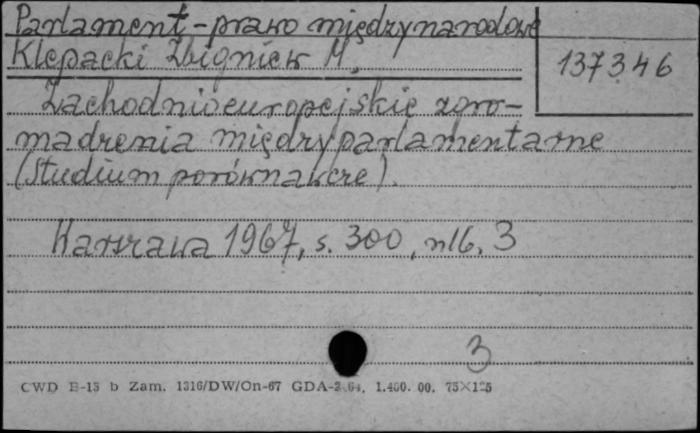 Parlament - prawo międzynarodowe
Klepacki Zbigniew M.
137346
Zachodnioeuropejskie zgro-
madzenia międzyparlamentarne
(Studium porównawcze).
Warszawa 1967, s. 300, nlb. 3
3
CWD E-15 b Zam. 1316/DW/On-67 GDA-2.64. 1.400.00. 75×125